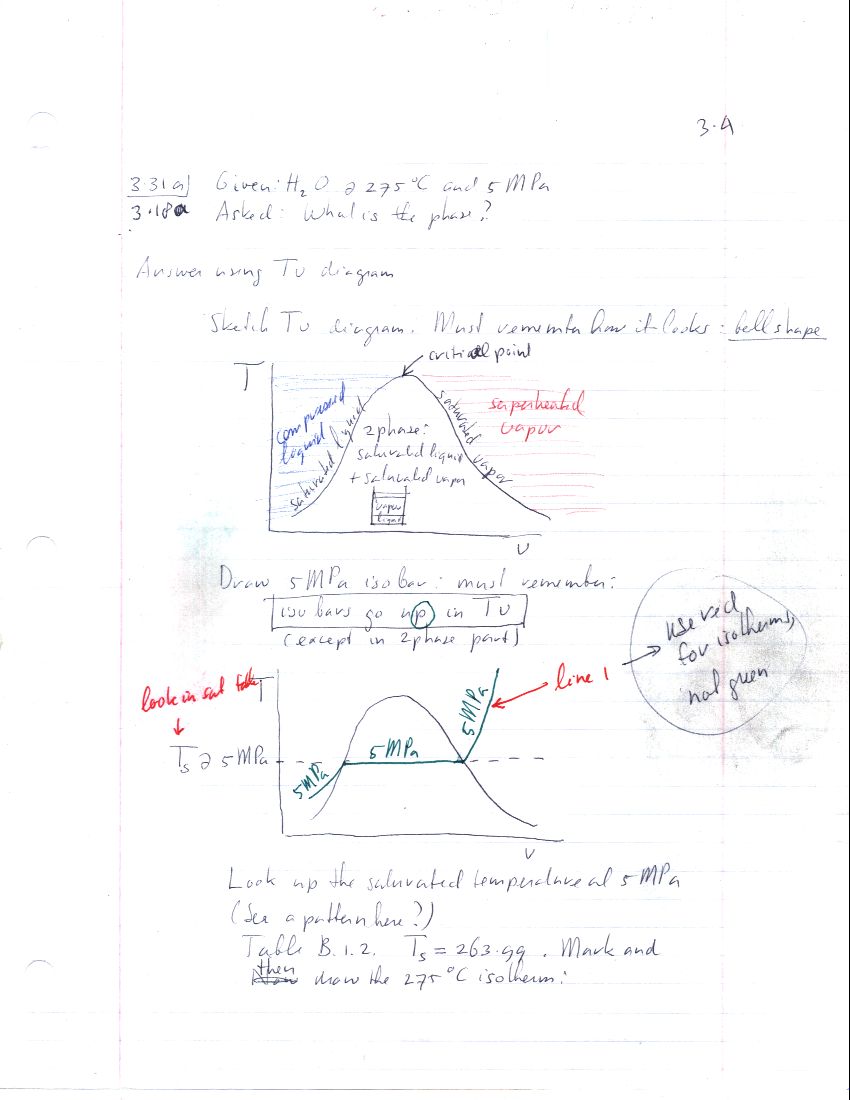 3.4
3.31a) Given: H2O @ 275°C and 5 MPa
3.18a Asked: What is the phase?
Answer using Tv diagram
Sketch Tv diagram. Must remember how it looks: bell shape
critical point
T
compressed liquid
saturated liquid
2 phase:
saturated liquid
+ saturated vapor
vapor
liquid
saturated vapor
superheated
vapor
v
Draw 5 MPa isobar: must remember:
isobars go up in Tv
(except in 2 phase part)
use red
for isotherms,
not green
line 1
look in sat table
T
5 MPa
Ts @ 5 MPa
5 MPa
5 MPa
v
Look up the saturated temperature at 5 MPa
(See a pattern here?)
Table B.1.2. Ts = 263.99. Mark and
then draw the 275°C isotherm: